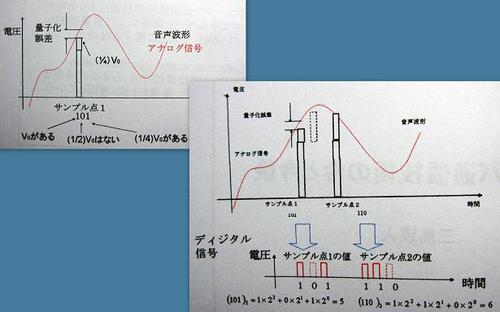 電圧
量子化
誤差
音声波形
アナログ信号
(¼)V₀
サンプル点1
101
V₀がある
(1/2)V₀はない
(1/4)V₀がある
電圧
量子化誤差
音声波形
アナログ信号
サンプル点1
サンプル点2
時間
101
110
ディジタル
信号
電圧
サンプル点1の値
サンプル点2の値
1 0 1
1 1 0
時間
(101)₂ = 1×2² + 0×2¹ + 1×2⁰ = 5
(110)₂ = 1×2² + 1×2¹ + 0×2⁰ = 6